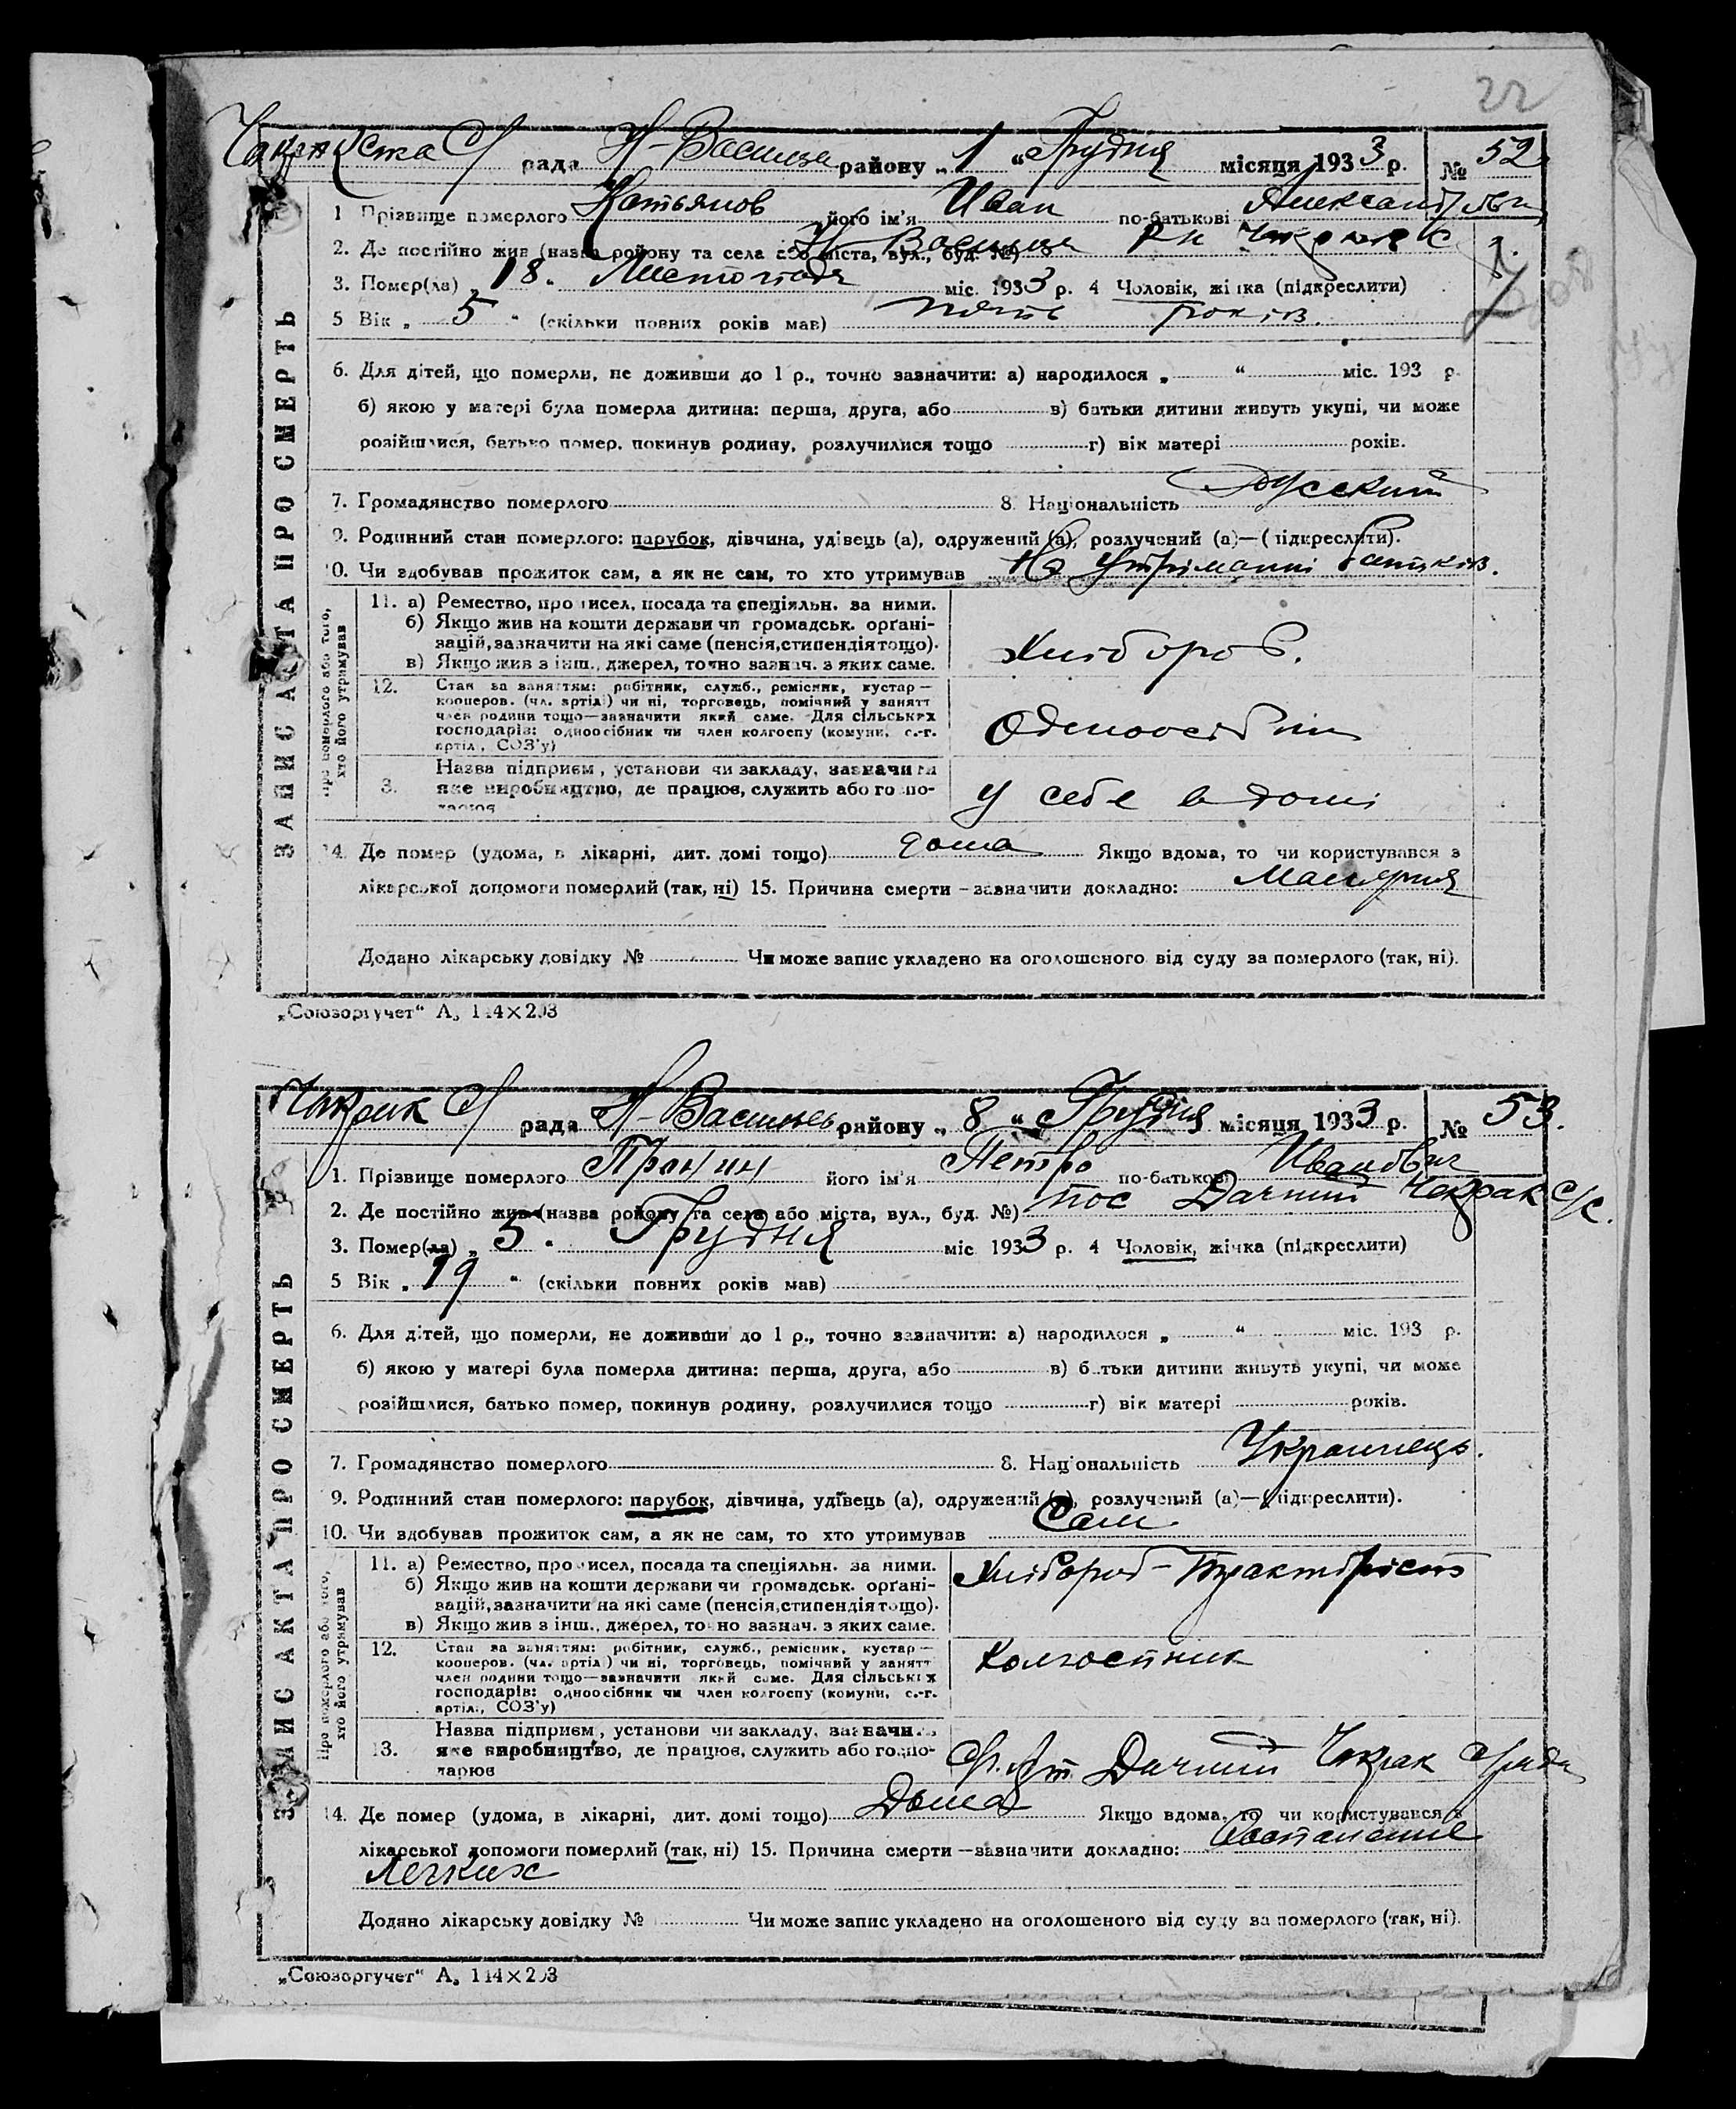 22
рада Н-Василів району „1“ Грудня місяця 1933 р. № 52
1 Прізвище померлого Катьянов його ім'я Иван по-батькові
2. Де постійно жив (назва району та села або міста, вул., буд. №)
3. Помер(ла) „18“ Листопада міс. 1933 р. 4 Чоловік, жінка (підкреслити)
5 Вік „5“ (скільки повних років мав) пять років.
6. Для дітей, що померли, не доживши до 1 р., точно зазначити: а) народилося „ “ міс. 193 р.
б) якою у матері була померла дитина: перша, друга, або в) батьки дитини живуть укупі, чи може
розійшлися, батько помер, покинув родину, розлучилися тощо г) вік матері років.
7. Громадянство померлого 8. Національність Русский
9. Родинний стан померлого: парубок, дівчина, удівець (а), одружений (а), розлучений (а)—(підкреслити).
10. Чи здобував прожиток сам, а як не сам, то хто утримував На утриманні батьків.
ЗАПИС АКТА ПРО СМЕРТЬ
Про померлого або того,
хто його утримував
11. а) Ремество, промисел, посада та спеціяльн. за ними.
б) Якщо жив на кошти держави чи громадськ. орґані-
зацій, зазначити на які саме (пенсія, стипендія тощо).
в) Якщо жив з інш., джерел, точно зазнач. з яких саме.
Хлібороб.
12. Стан за заняттям: робітник, служб., ремісник, кустар—
кооперов. (чл. артілі) чи ні, торговець, помічний у занятт
член родини тощо—зазначити який саме. Для сільських
господарів: одноосібник чи член колгоспу (комуни, с.-г.
артіл., СОЗ'у)
Одноосібник
3. Назва підприєм., установи чи закладу, зазначити
яке виробництво, де працює, служить або госпо-
дарює
У себе в домі
14. Де помер (удома, в лікарні, дит. домі тощо) дома Якщо вдома, то чи користувався з
лікарської допомоги померлий (так, ні) 15. Причина смерти—зазначити докладно: Малярия
Додано лікарську довідку № Чи може запис укладено на оголошеного від суду за померлого (так, ні).
„Союзоргучет“ А₅ 144×203
Чакрак рада Н-Василів району „8“ Грудня місяця 1933 р. № 53.
1. Прізвище померлого Пронин його ім'я Петро по-батькові Иванович
2. Де постійно жив (назва району та села або міста, вул., буд. №) пос Дачний Чакрак с/с.
3. Помер(ла) „5“ Грудня міс 1933 р. 4 Чоловік, жінка (підкреслити)
5 Вік „19“ (скільки повних років мав)
6. Для дітей, що померли, не доживши до 1 р., точно зазначити: а) народилося „ “ міс. 193 р.
б) якою у матері була померла дитина: перша, друга, або в) батьки дитини живуть укупі, чи може
розійшлися, батько помер, покинув родину, розлучилися тощо г) вік матері років.
7. Громадянство померлого 8. Національність Украинець.
9. Родинний стан померлого: парубок, дівчина, удівець (а), одружений (а), розлучений (а)—(підкреслити).
10. Чи здобував прожиток сам, а як не сам, то хто утримував Сам
ЗАПИС АКТА ПРО СМЕРТЬ
Про померлого або того,
хто його утримував
11. а) Ремество, промисел, посада та спеціяльн. за ними.
б) Якщо жив на кошти держави чи громадськ. орґані-
зацій, зазначити на які саме (пенсія, стипендія тощо).
в) Якщо жив з інш., джерел, точно зазнач. з яких саме.
Хлібороб - Тракторіст
12. Стан за заняттям: робітник, служб., ремісник, кустар—
кооперов. (чл. артілі) чи ні, торговець, помічний у занятт
член родини тощо—зазначити який саме. Для сільських
господарів: одноосібник чи член колгоспу (комуни, с.-г.
артіл., СОЗ'у)
Колгоспник
13. Назва підприєм., установи чи закладу, зазначить
яке виробництво, де працює, служить або госпо-
дарює
Дачний Чакрак с/рада
14. Де помер (удома, в лікарні, дит. домі тощо) Дома Якщо вдома, то чи користувався з
лікарської допомоги померлий (так, ні) 15. Причина смерти—зазначити докладно:
Легких
Додано лікарську довідку № Чи може запис укладено на оголошеного від суду за померлого (так, ні).
„Союзоргучет“ А₅ 144×203